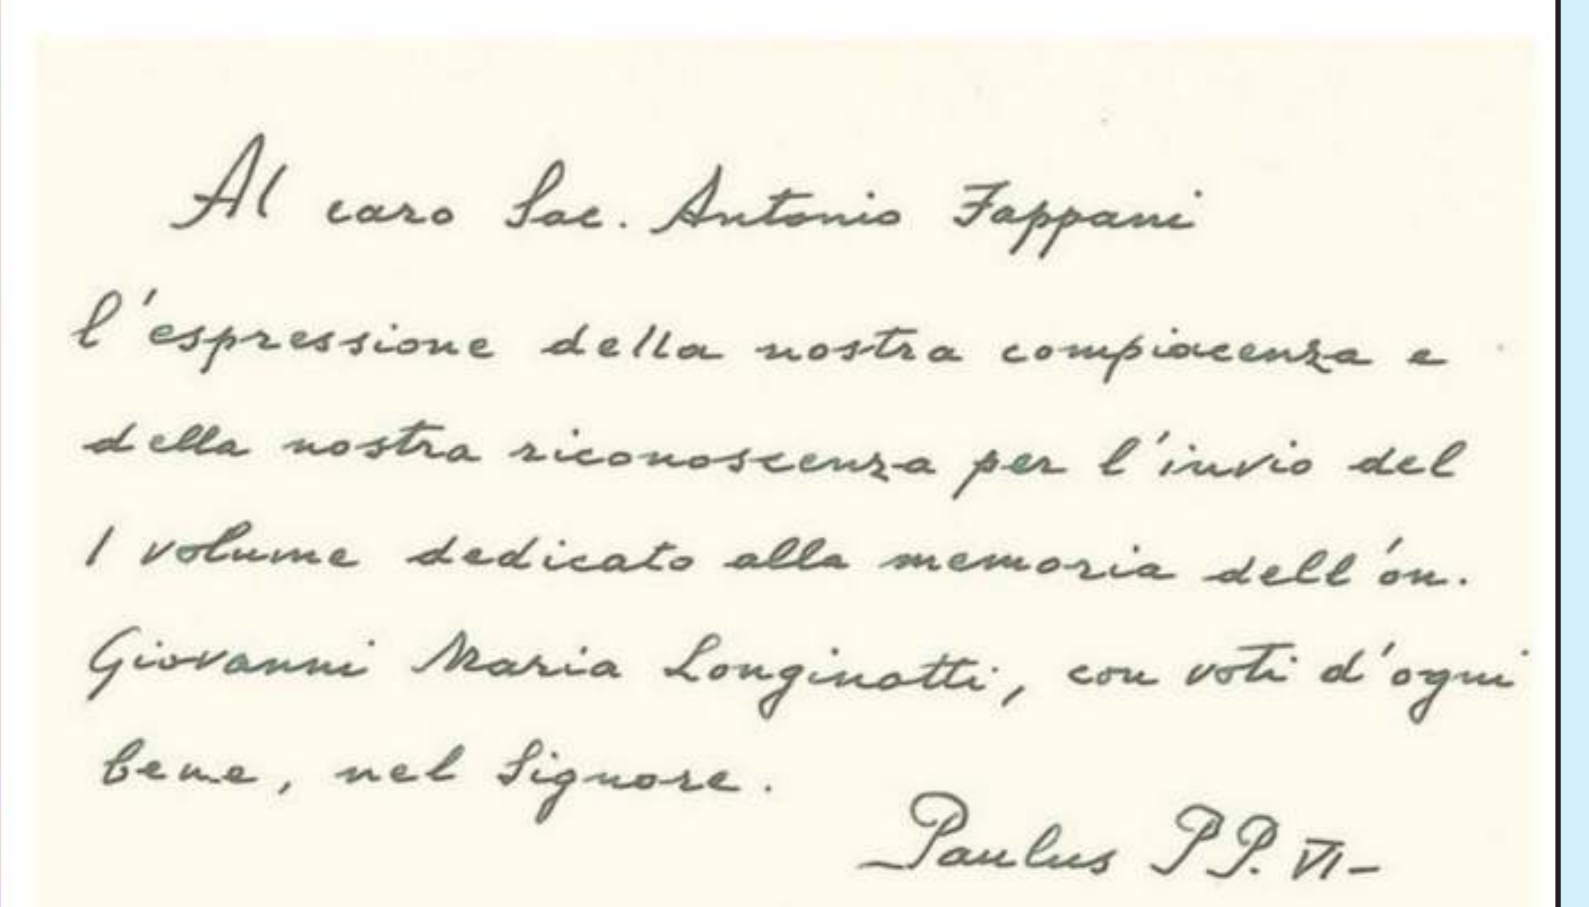 Al caro Sac. Antonio Fappani
l'espressione della nostra compiacenza e
della nostra riconoscenza per l'invio del
I volume dedicato alla memoria dell'on.
Giovanni Maria Longinotti, con voti d'ogni
bene, nel Signore.
Paulus PP. VI-